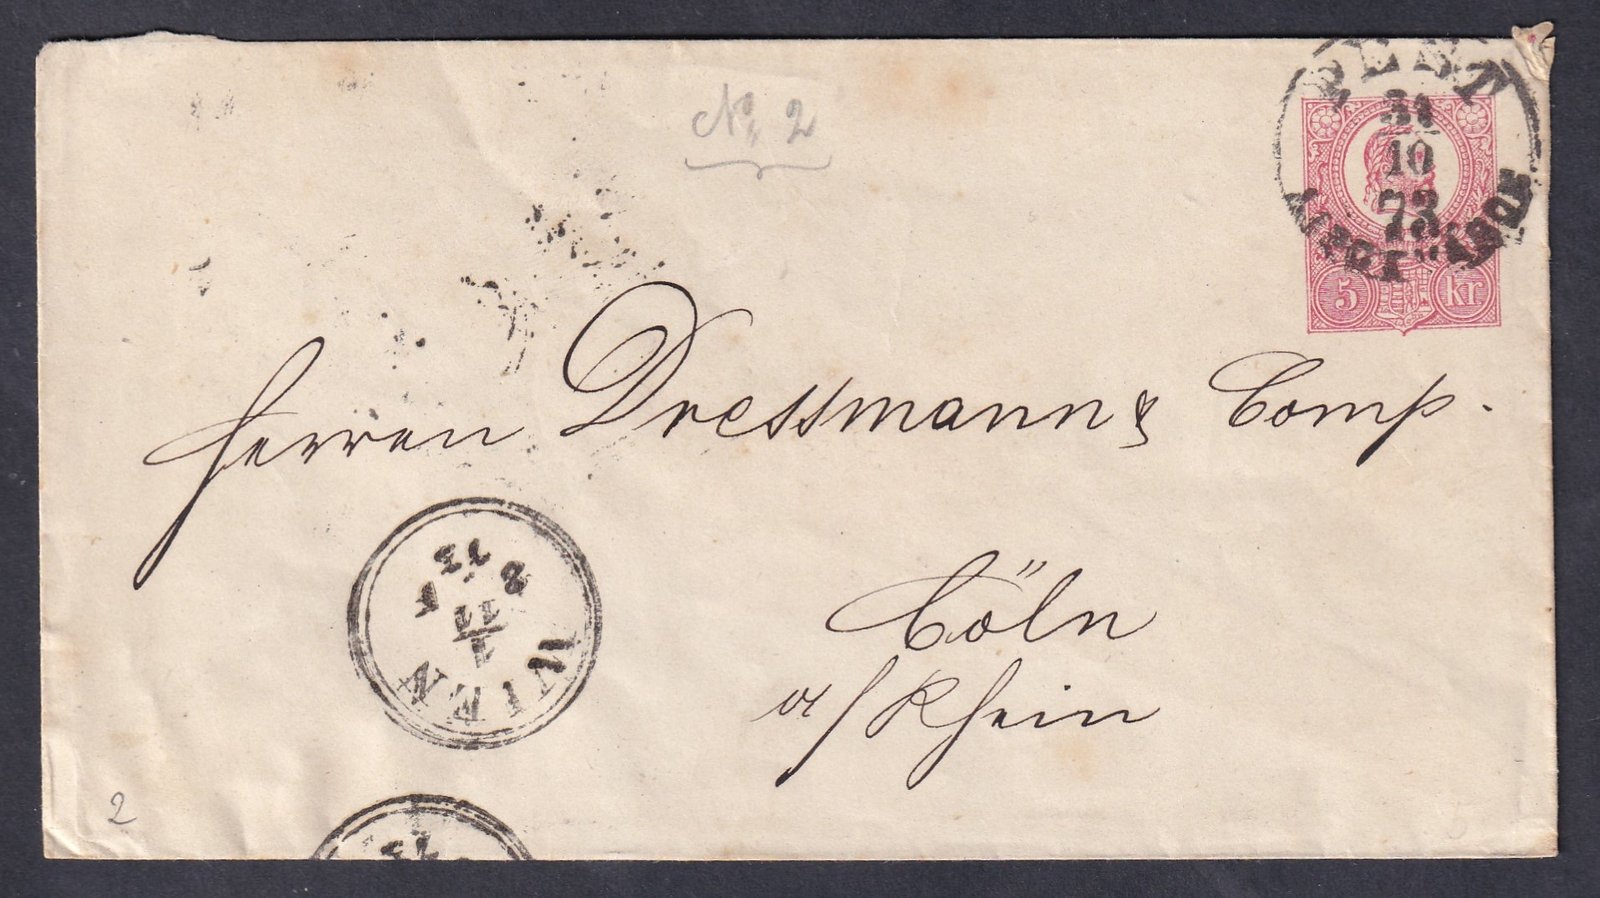 No. 2
PEST
31
10
73
5 kr
Herren Dressmann & Comp.
Cöln
a/Rhein
WIEN
1
11
2 A
73
2
73